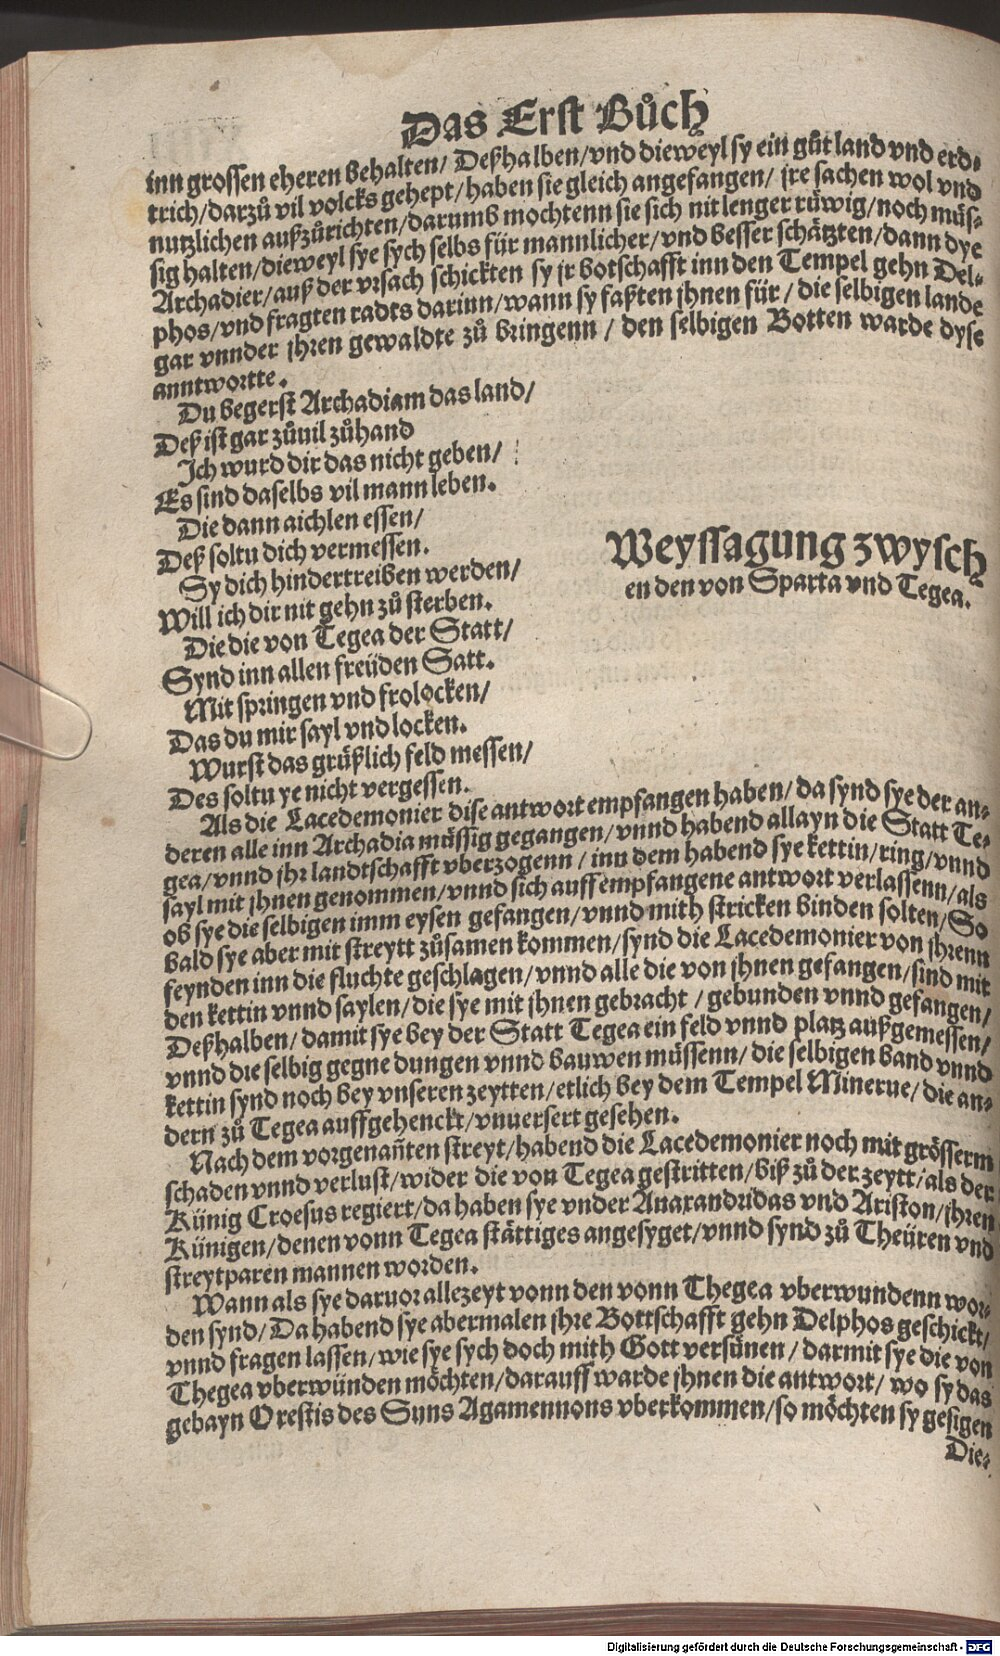 Das Erst Bůch
inn grossen eheren behalten/ Deßhalben/vnd dieweyl sy ein gůt land vnd erd-
trich/darzů vil volcks gehept/haben sie gleich angefangen/ jre sachen wol vnd
nutzlichen außzůrichten/darumb mochtenn sie sich nit lenger růwig/noch müs-
sig halten/dieweyl sye sych selbs für mannlicher/vnd besser schätzten/dann dye
Archadier/auß der vrsach schickten sy jr botschafft inn den Tempel gehn Del-
phos/vnd fragten radts darinn/wann sy faßten jhnen für/ die selbigen lande
gar vnnder jhren gewaldte zů bringenn / den selbigen Botten warde dyse
anntwortte.
Du begerst Archadiam das land/
Deß ist gar zůuil zůhand
Ich wurd dir das nicht geben/
Es sind daselbs vil mann leben.
Die dann aichlen essen/
Deß soltu dich vermessen.
Sy dich hindertreiben werden/
Will ich dir nit gehn zů sterben.
Die die von Tegea der Statt/
Synd inn allen freüden Satt.
Mit springen vnd frolocken/
Das du mir sayl vnd locken.
Wurst das grüßlich feld messen/
Des soltu ye nicht vergessen.
Weyssagung zwysch
en den von Sparta vnd Tegea.
Als die Lacedemonier dise antwort empfangen haben/ da synd sye der an-
deren alle inn Archadia müssig gegangen/vnnd habend allayn die Statt Te-
gea/vnnd jhr landtschafft vberzogenn/ inn dem habend sye kettin/ring/vnnd
sayl mit jhnen genommen/vnnd sich auff empfangene antwort verlassenn/als
ob sye die selbigen imm eysen gefangen/vnnd mith stricken binden solten/So
bald sye aber mit streytt zůsamen kommen/synd die Lacedemonier von jhrenn
feynden inn die fluchte geschlagen/vnnd alle die von jhnen gefangen/sind mit
den kettin vnnd saylen/die sye mit jhnen gebracht / gebunden vnnd gefangen/
Deßhalben/damit sye bey der Statt Tegea ein feld vnnd platz außgemessen/
vnnd die selbig gegne dungen vnnd bauwen müssenn/ die selbigen band vnnd
kettin synd noch bey vnseren zeytten/etlich bey dem Tempel Minerue/die an-
dern zů Tegea auffgehenckt/vnuersert gesehen.
Nach dem vorgenañten streyt/habend die Lacedemonier noch mit grösserm
schaden vnnd verlust/wider die von Tegea gestritten/biß zů der zeytt/als der
Künig Croesus regiert/da haben sye vnder Anaxandridas vnd Ariston/jhren
Künigen/denen vonn Tegea stättiges angesyget/vnnd synd zů Theüren vnd
streytparen mannen worden.
Wann als sye daruor allezeyt vonn den vonn Thegea vberwundenn wor-
den synd/Da habend sye abermalen jhre Bottschafft gehn Delphos geschickt/
vnnd fragen lassen/wie sye sych doch mith Gott versünen/ darmit sye die von
Thegea vberwünden möchten/darauff warde jhnen die antwort/ wo sy das
gebayn Orestis des Suns Agamennons vberkommen/so möchten sy gesigen
Die-
Digitalisierung gefördert durch die Deutsche Forschungsgemeinschaft - DFG